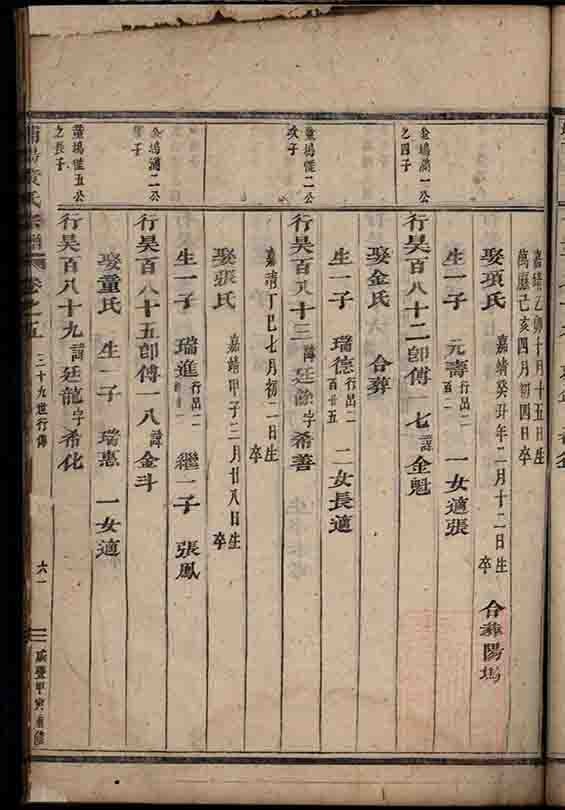 嘉靖乙卯十月十五日生
萬曆己亥四月初四日卒
娶項氏 嘉靖癸丑年二月十二日生 卒 合葬陽塢
生一子 元壽 行出二百二 一女適張
之四子
行昊百八十二卽傅一七諱金魁
娶金氏 合葬
生一子 瑞德 行出二百廿五 二女長適
董塢僱二公
次子
行昊百八十三諱廷餘字希善
嘉靖丁巳七月初二日生 卒
娶張氏 嘉靖甲子三月廿八日生 卒
生一子 瑞進 行出二 繼一子 張鳳
子
行昊百八十五卽傅一八諱金斗
娶童氏 生一子 瑞惠 一女適
董塢僱五公
之長子
行昊百八十九諱廷龍字希化
氏宗譜 卷之五 三十九世行傳 六一 咸豐甲寅重修